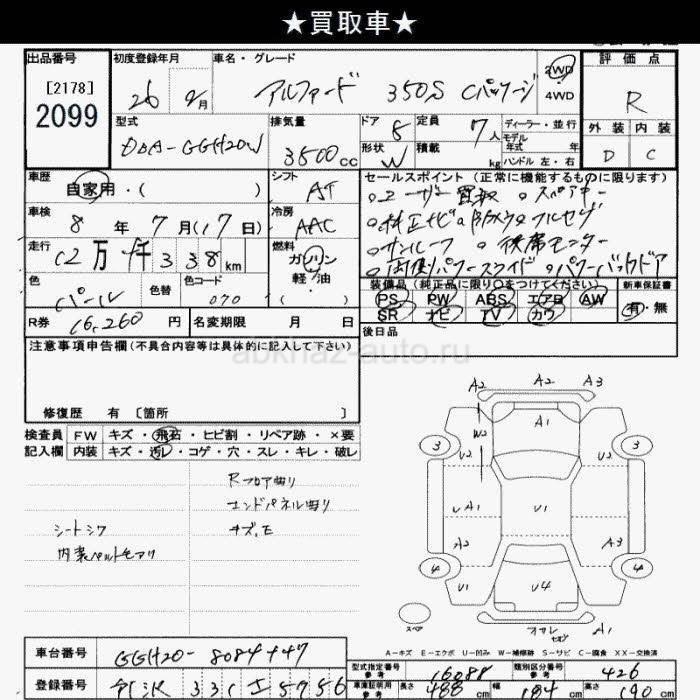 ★買取車★
出品番号
[2178]
2099
初度登録年月
26 年 月
車名・グレード
アルファード 350S Cパッケージ
2WD
・4WD
評価点
R
外装 内装
D C
型式
DBA-GGH20W
排気量
3500cc
ドア 5
形状 W
定員 7人
積載 kg
ディーラー・並行
モデル
年式 年
ハンドル 左・右
車歴
自家用・( )
シフト
AT
車検
8 年 7 月(17日)
冷房
AAC
走行
12万 千 338 km
燃料
ガソリン
軽・油
( )
色
パール
色替
色コード
070
R券 16,260 円
名変期限 月 日
セールスポイント(正常に機能するものに限ります)
。ユーザー買取 。スペアキー
。純正ナビ。Bカメラ。フルセグ
。サンルーフ 。後席モニター
。両側パワースライド 。パワーバックドア
装備品(純正品に限り○をつけてください)
PS PW ABS エアB AW
SR ナビ TV カワ
新車保証書
有・無
後日品
注意事項申告欄(不具合内容等は具体的に記入して下さい)
abkhaz-auto.ru
修復歴 有〔箇所 〕
検査員
記入欄
FW キズ・飛石・ヒビ割・リペア跡・×要
内装 キズ・汚レ・コゲ・穴・スレ・キレ・破レ
Rフロア曲り
エンドパネル曲り
シートシワ
内装ペットモアリ
A2 A2 A3
A1
W2
3 3
U2 U2
A1 U1 A1
A2 A3
4 4
U1 U4 U1
A1
スペア
A-キズ E-エクボ U-凹み W-補修跡 S-サビ C-腐食 XX-交換済
車台番号
GGH20-8084447
登録番号
型式指定番号
参考
16088
類別区分番号
参考
426
車庫証明用
参考
長さ 488 cm 幅 184 cm 高さ 190 cm